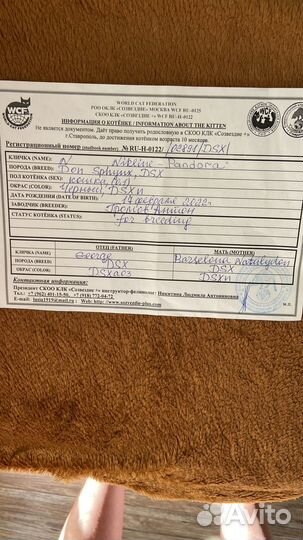 WORLD CAT FEDERATION
РОО ОКЛК «СОЗВЕЗДИЕ» МОСКВА WCF RU-0425
СКОО КЛК «СОЗВЕЗДИЕ +» WCF RU-H-0122
ИНФОРМАЦИЯ О КОТЁНКЕ / INFORMATION ABOUT THE KITTEN
Не является документом. Даёт право получить родословную в СКОО КЛК «Созвездие +»
г.Ставрополь, до достижения котёнком возраста 10 месяцев.
Регистрационный номер (studbook number): № RU-H-0122/ 02891/DSX
КЛИЧКА (NAME): Pandora
ПОРОДА (BREED): Don Sphynx, DSX
ПОЛ КОТЁНКА (SEX): кошка (0.1)
ОКРАС (COLOR): Черный DSX n
ДАТА РОЖДЕНИЯ (DATE OF BIRTH): 2022г.
ЗАВОДЧИК (BREEDER): Антон
СТАТУС КОТЁНКА (STATUS): for breeding
ОТЕЦ (FATHER) МАТЬ (MOTHER)
КЛИЧКА (NAME) George
ПОРОДА (BREED) DSX DSX
ОКРАС (COLOR) DSX n
Контактная информация:
Президент СКОО КЛК «Созвездие +» инструктор-фелинолог: Никитина Людмила Антоновна
Тел.: +7 (962) 401-15-50, +7 (918) 772-04-72
E-mail: http://www.sozvezdie-plus.com
М.П.
WCF
Avito